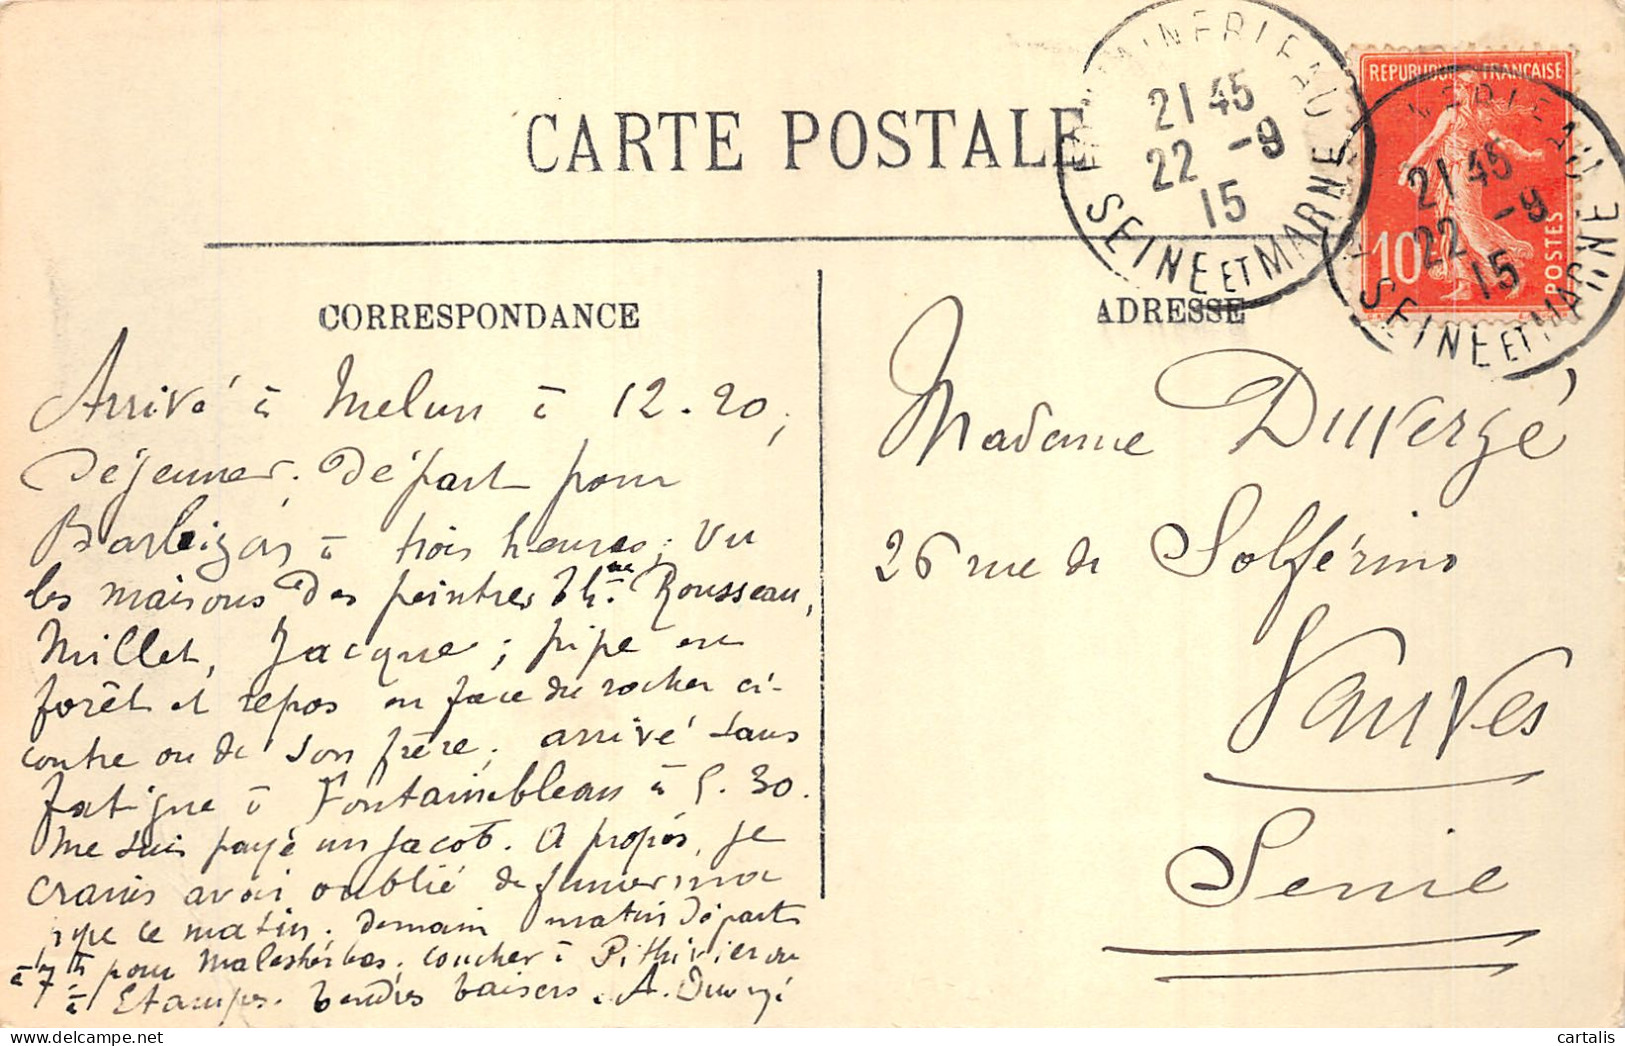 CARTE POSTALE
FONTAINEBLEAU
21 45
22 -9
15
SEINE ET MARNE
REPUBLIQUE FRANÇAISE
10
POSTES
21 45
22 -9
15
SEINE ET MARNE
CORRESPONDANCE
Arrivé à Melun à 12.20,
Déjeuner. Départ pour
Barbizon à trois heures; vu
les maisons des peintres Th. Rousseau,
Millet, Jacque; pipe en
forêt et repos en face du rocher ci-
contre ou de son frère; arrivé sans
fatigue à Fontainebleau à 5.30.
me suis payé un Jacob. A propos, je
crains avoir oublié de fumer ma
pipe ce matin. Demain matin départ
à 7h pour Malesherbes; coucher à Pithiviers ou
à Etampes. Tendres baisers. A. Duvergé
ADRESSE
Madame Duvergé
26 rue de Solférino
Vanves
Seine
cartalis